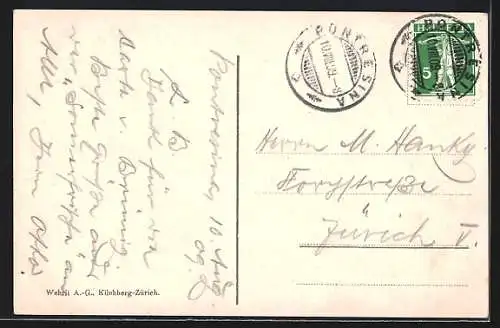 Pontresina, 10. Aug. 09.
L. B.
Dank für die
Karte v. Brünig.
Beste Grüße aus
der "Sommerfrische" an
Alle, Dein Otto.
Wehrli A.-G., Kilchberg-Zürich.
PONTRESINA
PONTRESINA
5
Herrn M. Hanky
Forchstraße
Zürich V.